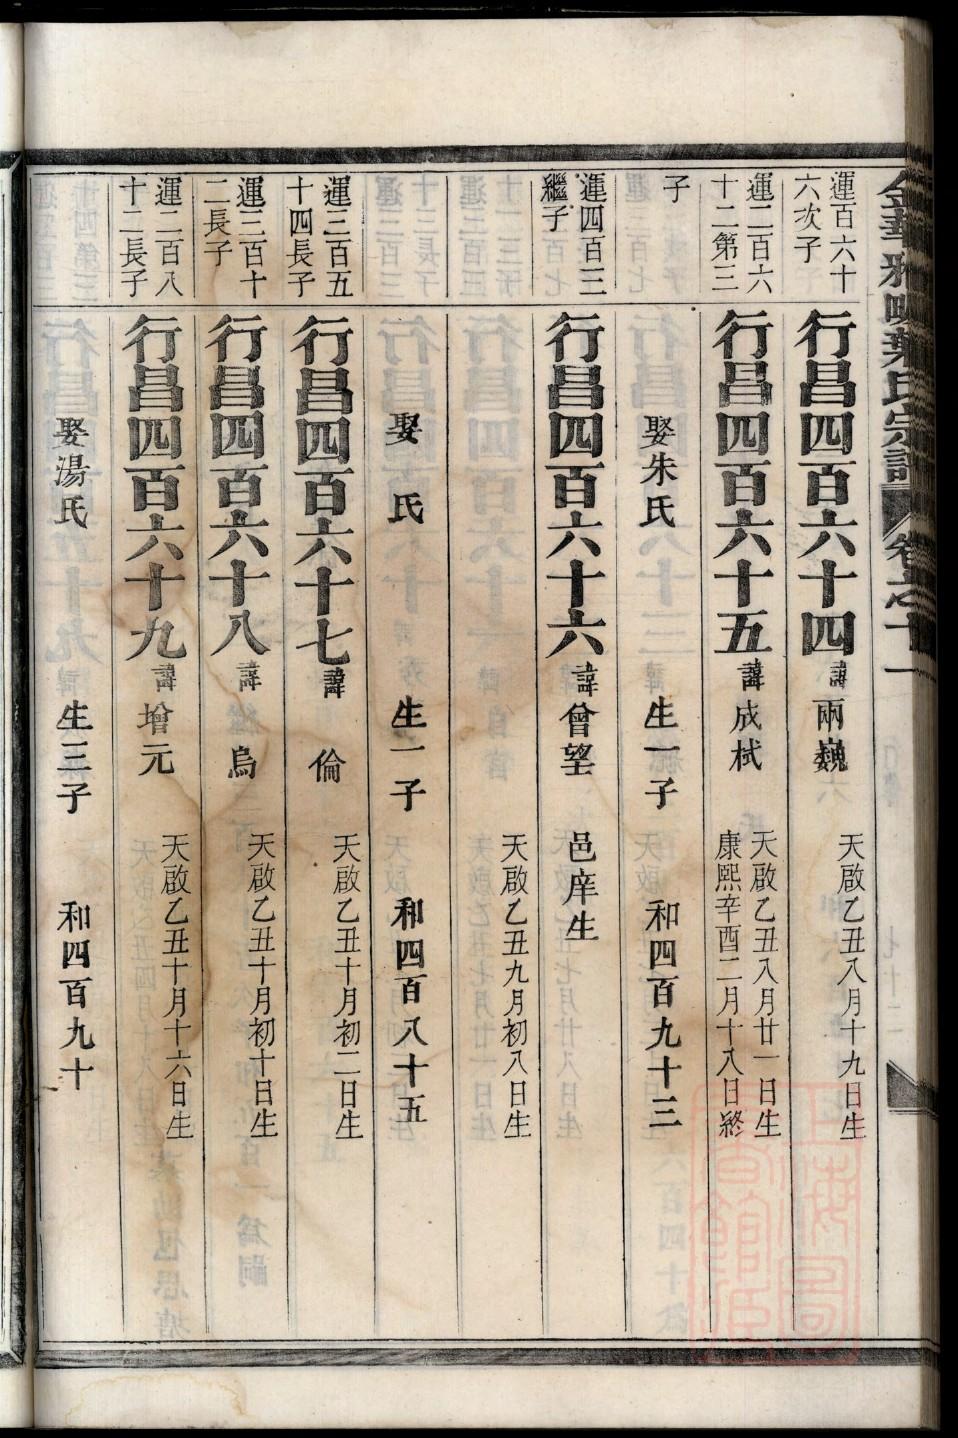 金華雅畈葉氏宗譜 卷之十一
運百六十六次子
行昌四百六十四 諱雨巍 天啟乙丑八月十九日生
運二百六十二第三子
行昌四百六十五 諱成栻 天啟乙丑八月廿一日生 康熙辛酉二月十八日終
娶朱氏 生一子 和四百九十三
運四百三繼子
行昌四百六十六 諱曾望 邑庠生
天啟乙丑九月初八日生
娶 氏 生一子 和四百八十五
運三百五十四長子
行昌四百六十七 諱 倫 天啟乙丑十月初二日生
運三百十二長子
行昌四百六十八 諱 烏 天啟乙丑十月初十日生
運二百八十二長子
行昌四百六十九 諱增元 天啟乙丑十月十六日生
娶湯氏 生三子 和四百九十